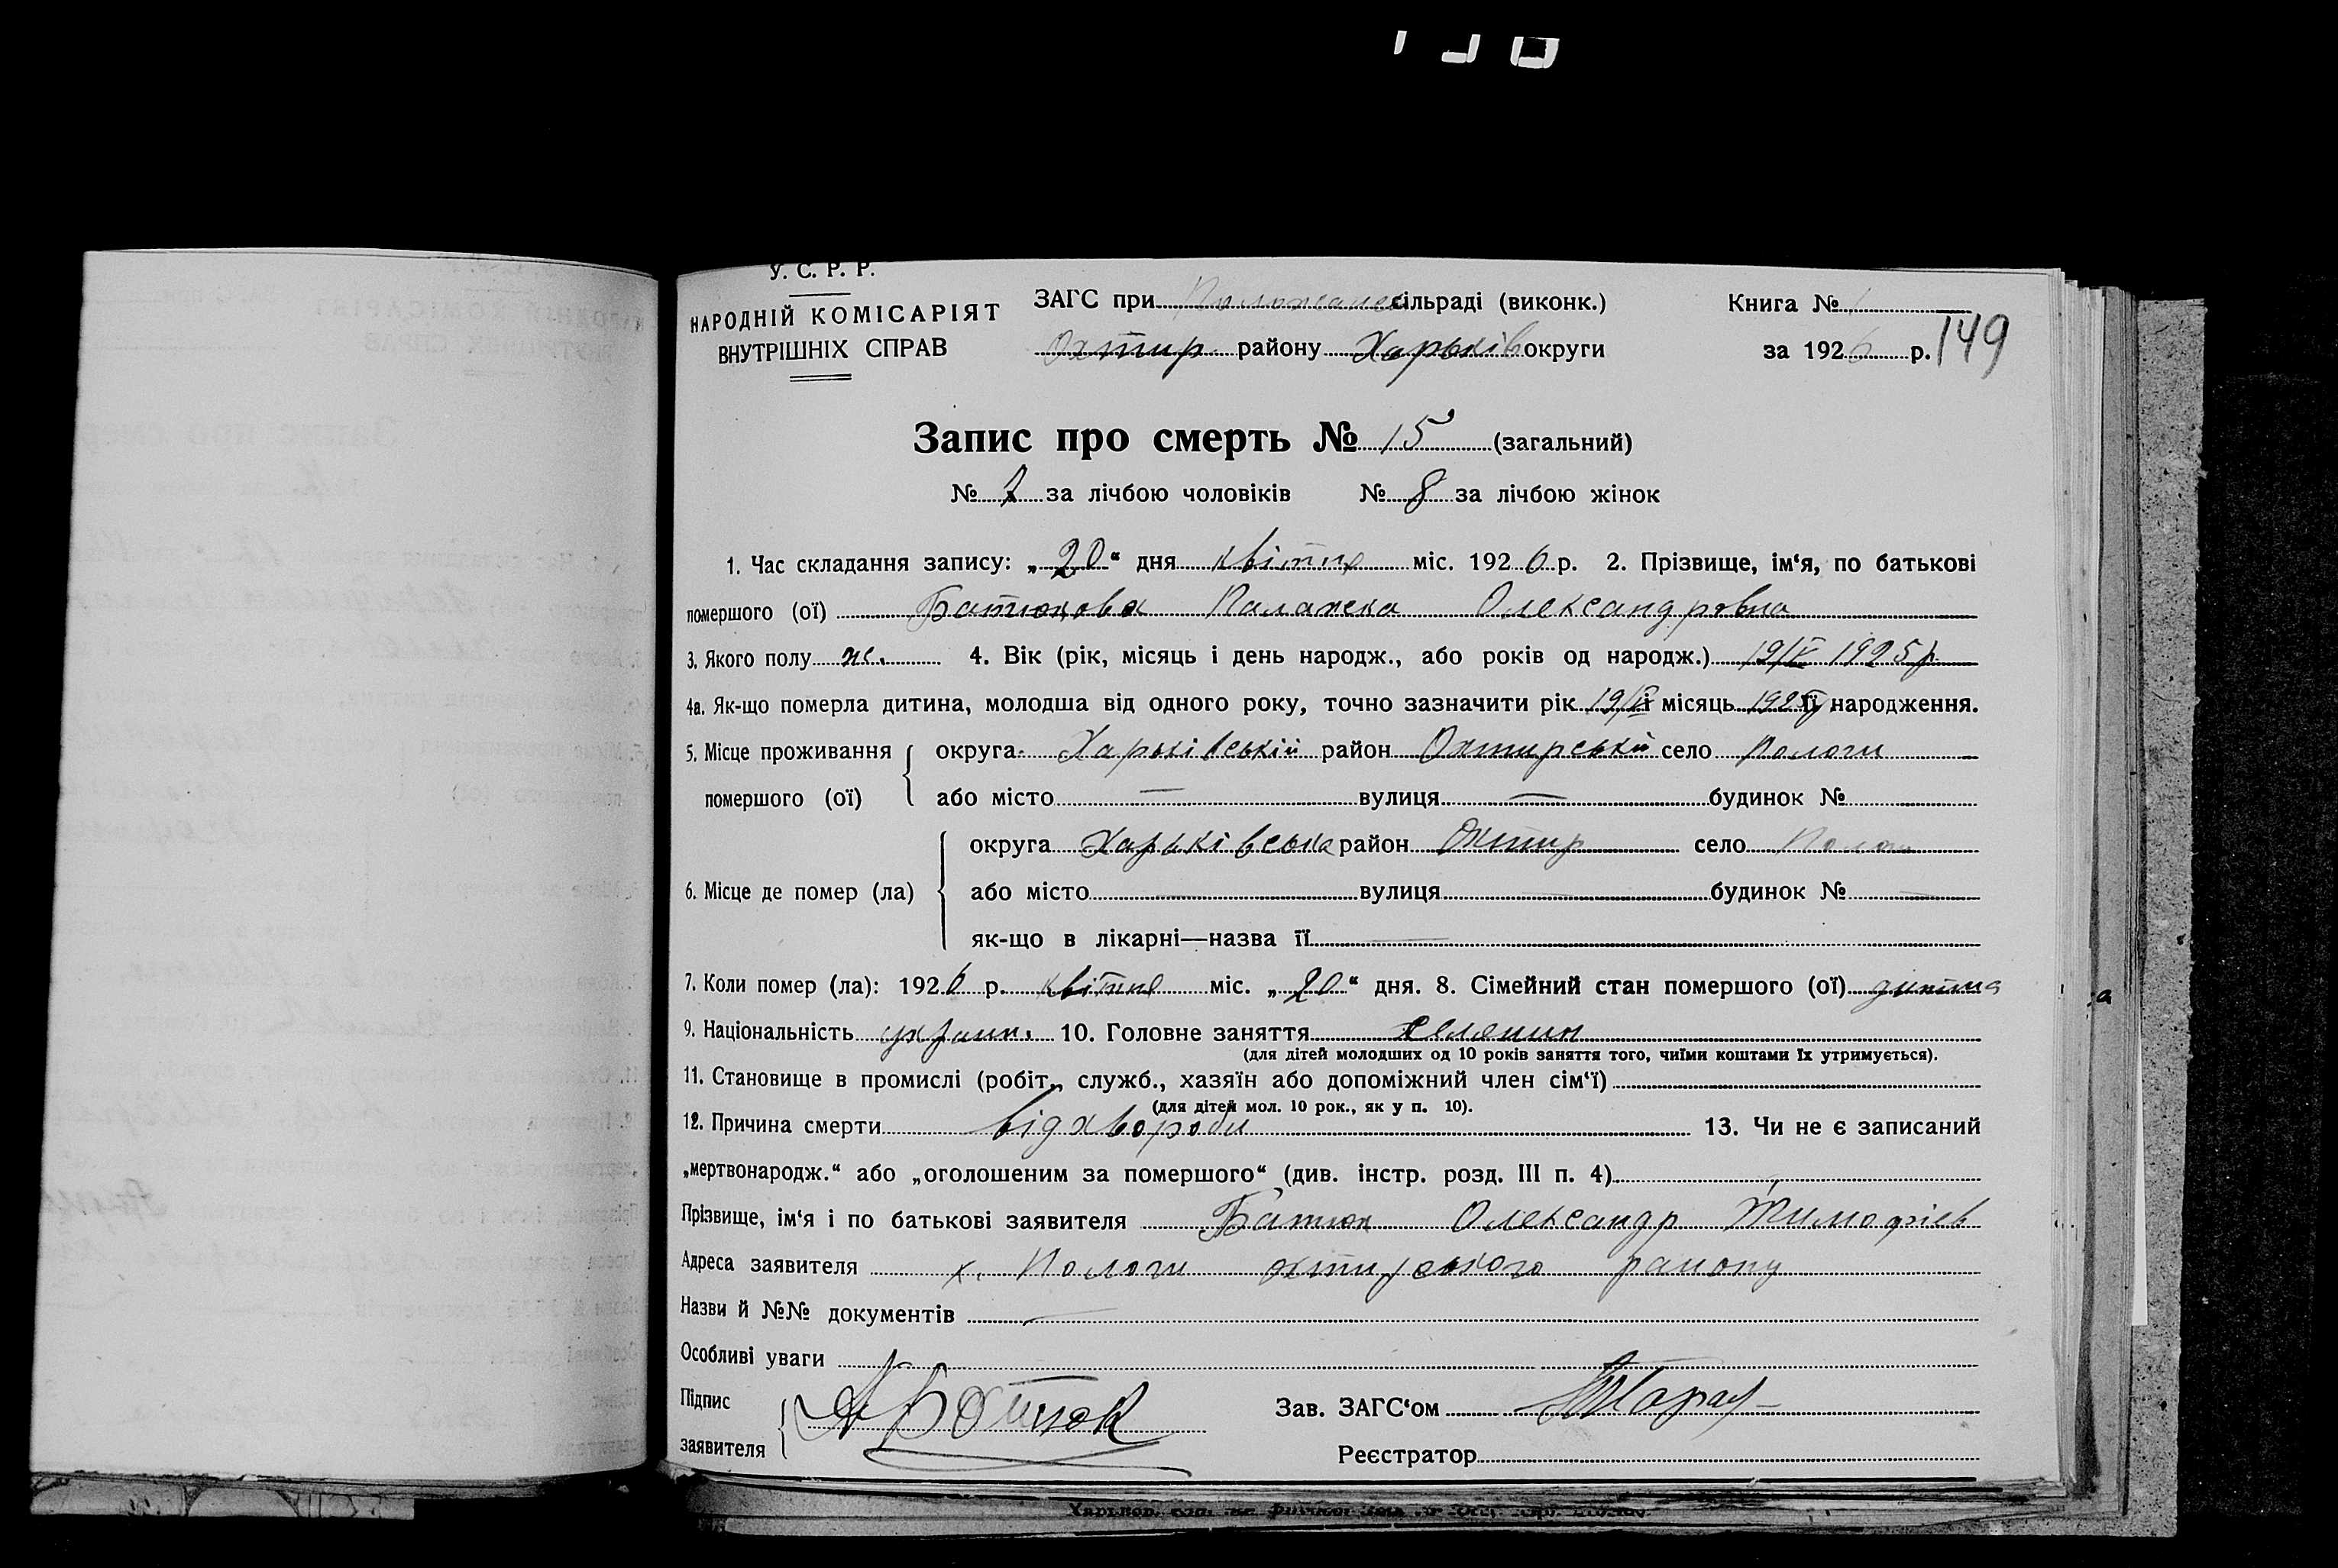 У. С. Р. Р.
НАРОДНІЙ КОМІСАРІЯТ
ВНУТРІШНІХ СПРАВ
ЗАГС при сільраді (виконк.)
Охтир. району Харьків округи
Книга № 1
за 1926 р.
149
Запис про смерть № 15 (загальний)
№ 7 за лічбою чоловіків № 8 за лічбою жінок
1. Час складання запису: „20“ дня квітня міс. 1926 р. 2. Прізвище, ім‘я, по батькові
помершого (ої) Батюкова Палажка Олександровна
3. Якого полу ж. 4. Вік (рік, місяць і день народж., або років од народж.) 1925 р
4а. Як-що померла дитина, молодша від одного року, точно зазначити рік і місяць 1925 її народження.
5. Місце проживання округа Харьківській район Охтирській село Пологи
помершого (ої) або місто — вулиця — будинок №
6. Місце де помер (ла) округа Харьківська район Охтир село Пологи
або місто — вулиця — будинок № —
як-що в лікарні—назва її —
7. Коли помер (ла): 1926 р. квітня міс. „20“ дня. 8. Сімейний стан помершого (ої) дитина
9. Національність україн. 10. Головне заняття селянин
(для дітей молодших од 10 років заняття того, чиїми коштами їх утримується).
11. Становище в промислі (робіт., служб., хазяїн або допоміжний член сім‘ї)
(для дітей мол. 10 рок., як у п. 10).
12. Причина смерти від хвороби 13. Чи не є записаний
„мертвонародж.“ або „оголошеним за помершого“ (див. інстр. розд. III п. 4)
Прізвище, ім‘я і по батькові заявителя Батюк Олександр Тимофіев
Адреса заявителя х. Пологи охтирського району
Назви й №№ документів —
Особливі уваги
Підпис
заявителя А Батюк
Зав. ЗАГС‘ом
Реєстратор